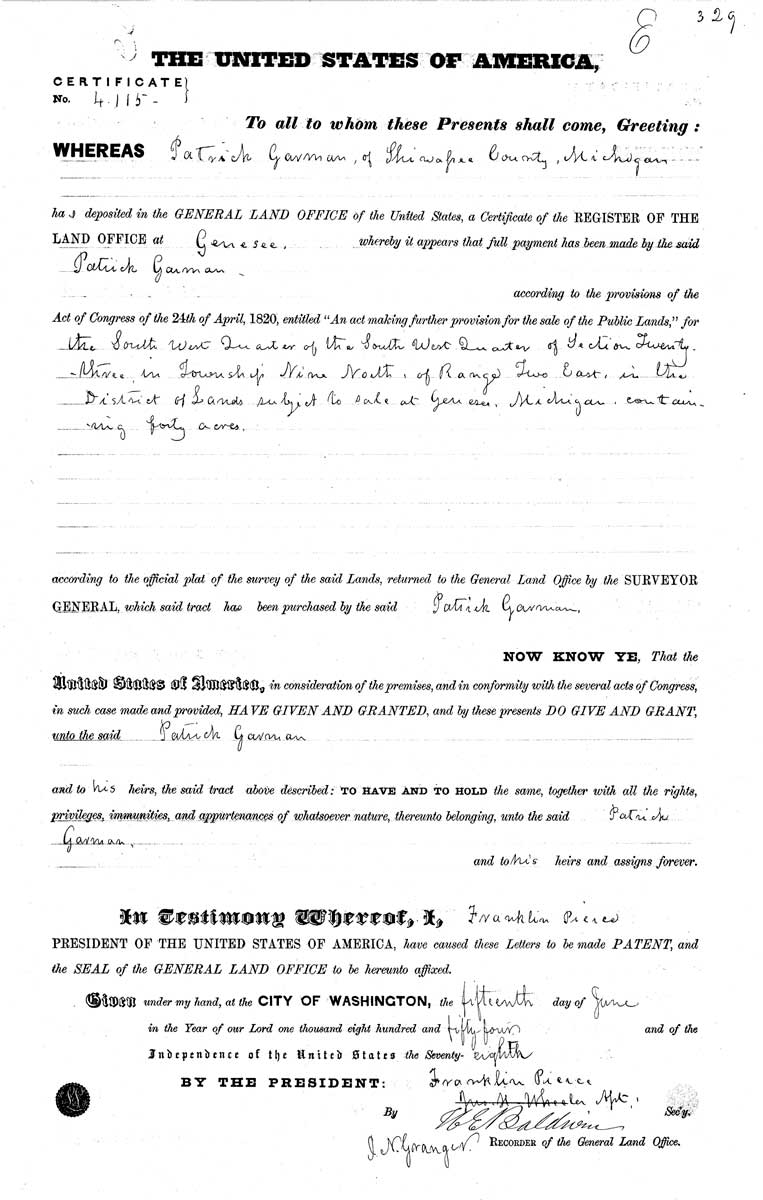 329
E
THE UNITED STATES OF AMERICA,
CERTIFICATE
No. 4.115-
To all to whom these Presents shall come, Greeting:
WHEREAS Patrick Garman, of Shiwassee County, Michigan
has deposited in the GENERAL LAND OFFICE of the United States, a Certificate of the REGISTER OF THE
LAND OFFICE at Genesee. whereby it appears that full payment has been made by the said
Patrick Garman
according to the provisions of the
Act of Congress of the 24th of April, 1820, entitled "An act making further provision for the sale of the Public Lands," for
the South West Quarter of the South West Quarter of Section Twenty-
-three, in Township Nine North, of Range Two East, in the
District of Lands subject to sale at Genesee, Michigan. contain-
ing forty acres.
according to the official plat of the survey of the said Lands, returned to the General Land Office by the SURVEYOR
GENERAL, which said tract has been purchased by the said Patrick Garman,
NOW KNOW YE, That the
United States of America, in consideration of the premises, and in conformity with the several acts of Congress,
in such case made and provided, HAVE GIVEN AND GRANTED, and by these presents DO GIVE AND GRANT,
unto the said Patrick Garman
and to his heirs, the said tract above described: TO HAVE AND TO HOLD the same, together with all the rights,
privileges, immunities, and appurtenances of whatsoever nature, thereunto belonging, unto the said Patrick
Garman,
and to his heirs and assigns forever.
In Testimony Whereof, I, Franklin Pierce
PRESIDENT OF THE UNITED STATES OF AMERICA, have caused these Letters to be made PATENT, and
the SEAL of the GENERAL LAND OFFICE to be hereunto affixed.
Given under my hand, at the CITY OF WASHINGTON, the fifteenth day of June
in the Year of our Lord one thousand eight hundred and fifty four and of the
Independence of the United States the Seventy-eighth
BY THE PRESIDENT: Franklin Pierce
Wheeler Apt.
By H E Baldwin Sec'y.
J. N. Granger. RECORDER of the General Land Office.